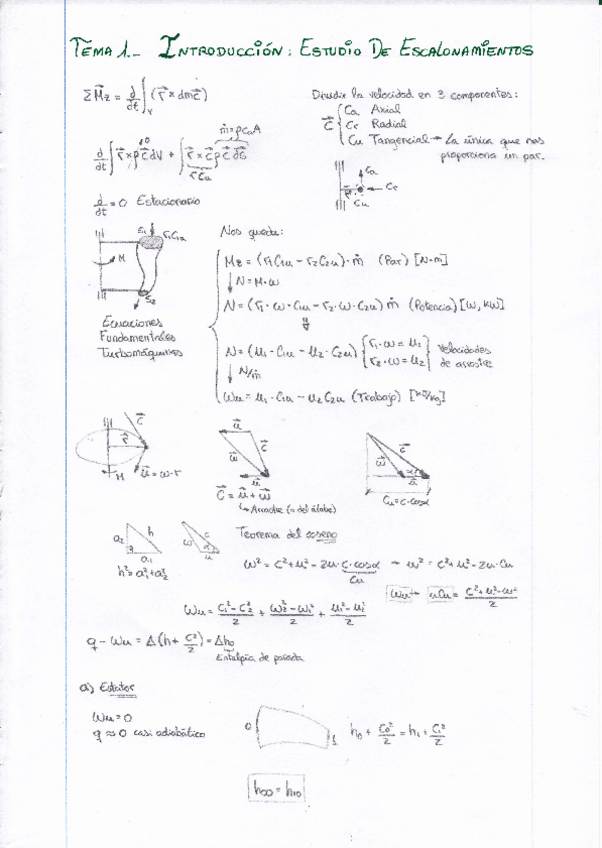 TEMA 1.- INTRODUCCIÓN: ESTUDIO DE ESCALONAMIENTOS
Σ M⃗z = d/dt ∫v (r⃗ × dm c⃗)
Dividir la velocidad en 3 componentes:
c⃗ { Ca Axial
Cr Radial
Cu Tangencial → La única que nos proporciona un par.
ṁ = ρCaA
d/dt ∫ r⃗ × ρ c⃗ dV + ∫ r⃗ × c⃗ ρ c⃗ ds⃗
rCu
d/dt = 0 Estacionario
Ca
Cr
Cu
r1C1u
M
Ecuaciones
Fundamentales
Turbomáquinas
Nos queda:
Mz = (r1C1u - r2C2u)·ṁ (Par) [N·m]
↓ N = M·ω
N = (r1·ω·C1u - r2·ω·C2u) ṁ (Potencia) [W, kW]
N = (u1·C1u - u2·C2u) { r1·ω = u1
r2·ω = u2 } velocidades de arrastre
↓ N/ṁ
Wu = u1·C1u - u2C2u (Trabajo) [kJ/kg]
c⃗
r⃗
M
u⃗ = ω·r
u⃗
w⃗
c⃗
u⃗
c⃗ = u⃗ + w⃗
↳ Arrastre (= del álabe)
w⃗
c⃗
α
u⃗
Cu = c·cosα
a2
h
a1
h² = a1² + a2²
w
c
α
u
Teorema del coseno
w² = c² + u² - 2u·c·cosα → w² = c² + u² - 2u·Cu
Cu
Wu → uCu = (c² + u² - w²)/2
Wu = (C1² - C2²)/2 + (w2² - w1²)/2 + (u1² - u2²)/2
q - Wu = Δ(h + c²/2) = Δh0
Entalpía de parada
a) Estátor
Wu = 0
q ≈ 0 casi adiabático
0
1
h0 + C0²/2 = h1 + C1²/2
h00 = h10